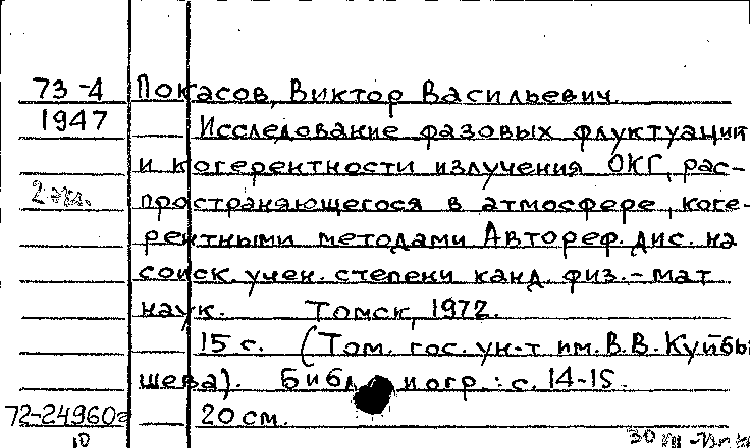 73-4 Покасов, Виктор Васильевич.
1947 Исследование фазовых флуктуаций
и когерентности излучения ОКГ, рас-
2 экз. пространяющегося в атмосфере, коге-
рентными методами Автореф. дис. на
соиск. учен. степени канд. физ.-мат
наук. Томск, 1972.
15 с. (Том. гос. ун-т им. В.В. Куйбы
шева). Библиогр.: с. 14-15.
72-24960г 20 см.